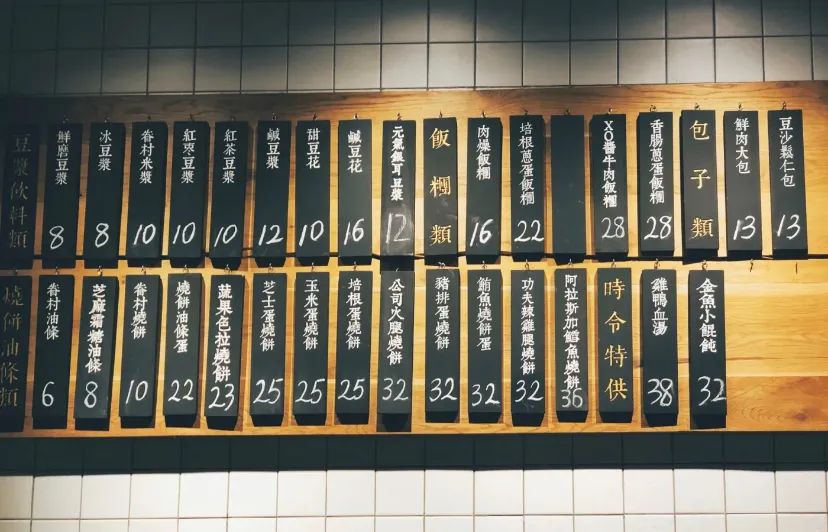 豆漿飲料類
鮮磨豆漿 8
冰豆漿 8
眷村米漿 10
紅棗豆漿 10
紅茶豆漿 10
鹹豆漿 12
甜豆花 10
鹹豆花 16
元氣銀耳豆漿 12
飯糰類
肉燥飯糰 16
培根蔥蛋飯糰 22
XO醬牛肉飯糰 28
香腸蔥蛋飯糰 28
包子類
鮮肉大包 13
豆沙鬆仁包 13
燒餅油條類
眷村油條 6
芝麻霜糖油條 8
眷村燒餅 10
燒餅油條蛋 22
蔬果色拉燒餅 23
芝士蛋燒餅 25
玉米蛋燒餅 25
培根蛋燒餅 25
公司火腿燒餅 32
豬排蛋燒餅 32
鮪魚燒餅蛋 32
功夫辣雞腿燒餅 32
阿拉斯加鱈魚燒餅 36
時令特供
雞鴨血湯 38
金魚小餛飩 32